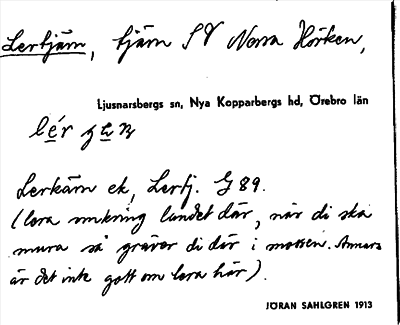 Lertjärn, tjärn SV Norra Hörken,
Ljusnarsbergs sn, Nya Kopparbergs hd, Örebro län
lér
Lerkärn ek, Lertj. G 89.
(lera omkring landet där, när di ska
mura så gräver di där i mossen. Annars
är det inte gott om lera här).
JÖRAN SAHLGREN 1913